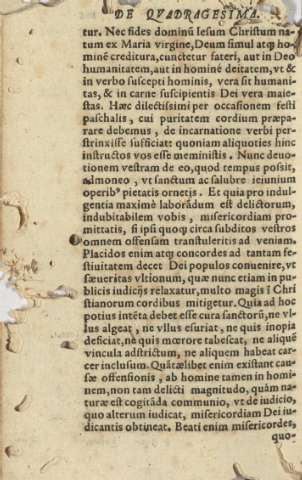 DE QVADRAGESIMA.
tur. Nec fides dominū Iesum Christum na-
tum ex Maria virgine, Deum simul atq́; ho-
minē creditura, cunctetur fateri, aut in Deo
humanitatem, aut in hominē deitatem, vt &
in verbo suscepti hominis, vera sit humani-
tas, & in carne suscipientis Dei vera maie-
stas. Hæc dilectissimi per occasionem festi
paschalis, cui puritatem cordium præpa-
rare debemus, de incarnatione verbi per-
strinxisse sufficiat: quoniam aliquoties hinc
instructos vos esse meministis. Nunc deuo-
tionem vestram de eo, quod tempus poscit,
admoneo, vt sanctum ac salubre ieiunium
operibꝰ pietatis ornetis. Et quia pro indul-
gentia maximè laborādum est delictorum,
indubitabilem vobis, misericordiam pro-
mittatis, si ipsi quoq; circa subditos vestros
omnem offensam transtuleritis ad veniam.
Placidos enim atq; concordes ad tantam fe-
stiuitatem decet Dei populos conuenire, vt
sæueritas vltionum, quæ nunc etiam in pu-
blicis iudicijs relaxatur, multo magis ī Chri
stianorum cordibus mitigetur. Quia ad hoc
potius intēta debet esse cura sanctorū, ne vl-
lus algeat, ne vllus esuriat, ne quis inopia
deficiat, ne quis mœrore tabescat, ne aliquē
vincula adstrictum, ne aliquem habeat car-
cer inclusum. Quātælibet enim existant cau-
sæ offensionis, ab homine tamen in homi-
nem, non tam delicti magnitudo, quàm na-
turæ est cogitāda communio, vt de iudicio,
quo alterum iudicat, misericordiam Dei iu-
dicantis obtineat. Beati enim misericordes,
quo-